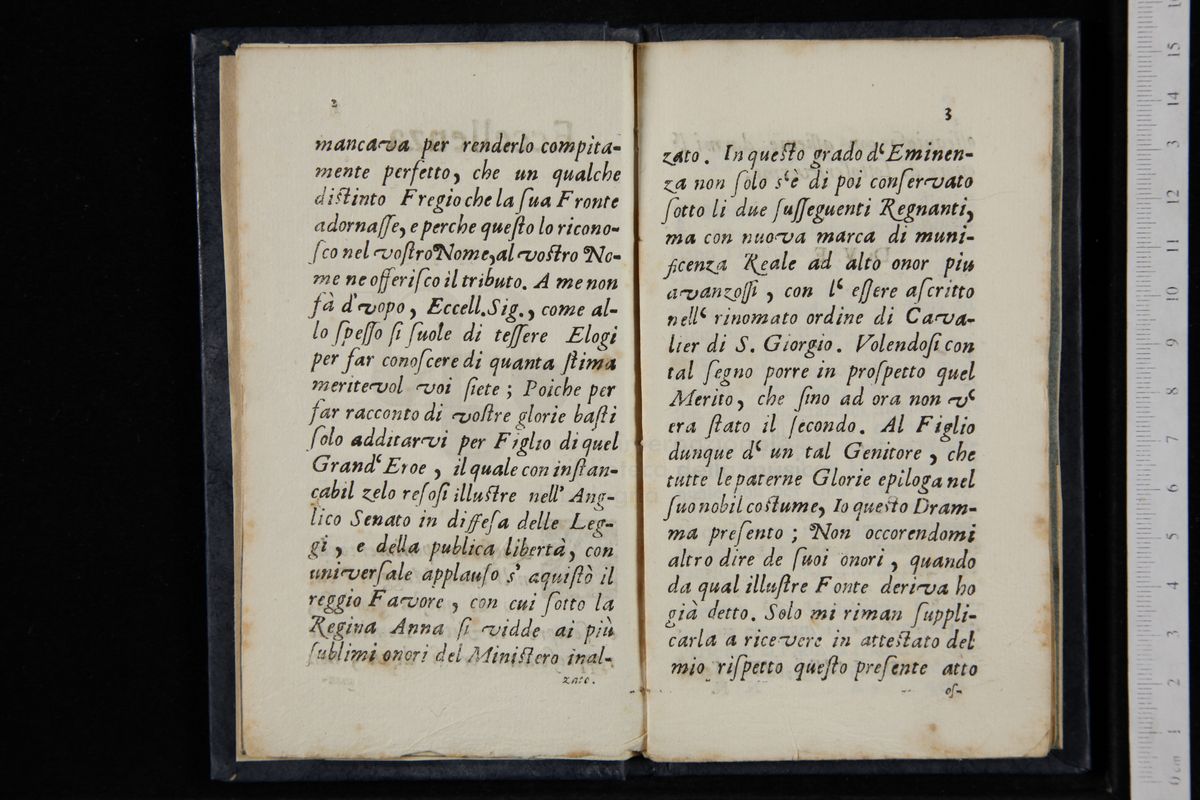 2
mancava per renderlo compita-
mente perfetto, che un qualche
distinto Fregio che la ſua Fronte
adornaſſe, e perche queſto lo ricono-
ſco nel voſtro Nome, al voſtro No-
me ne offeriſco il tributo. A me non
fà d'vopo, Eccell. Sig., come al-
lo ſpeſſo ſi ſuole di teſſere Elogi
per far conoſcere di quanta ſtima
meritevol voi ſiete; Poiche per
far racconto di voſtre glorie baſti
ſolo additarvi per Figlio di quel
Grand‘ Eroe, il quale con inſtan-
cabil zelo reſoſi illuſtre nell' Ang-
lico Senato in diffeſa delle Leg-
gi, e della publica libertà, con
univerſale applauſo s' aquiſtò il
reggio Favore, con cui ſotto la
Regina Anna ſi vidde ai più
ſublimi onori del Miniſtero inal-
zato.
3
zato. In queſto grado d‘ Eminen-
za non ſolo s‘è di poi conſervato
ſotto li due ſuſſeguenti Regnanti,
ma con nuova marca di muni-
ficenza Reale ad alto onor piu
avanzoſſi, con l‘ eſſere aſcritto
nell‘ rinomato ordine di Cava-
lier di S. Giorgio. Volendoſi con
tal ſegno porre in proſpetto quel
Merito, che ſino ad ora non v‘
era ſtato il ſecondo. Al Figlio
dunque d‘ un tal Genitore, che
tutte le paterne Glorie epiloga nel
ſuo nobil coſtume, Io queſto Dram-
ma preſento; Non occorendomi
altro dire de ſuoi onori, quando
da qual illuſtre Fonte deriva ho
già detto. Solo mi riman ſuppli-
carla a ricevere in atteſtato del
mio riſpetto queſto preſente atto
oſ-